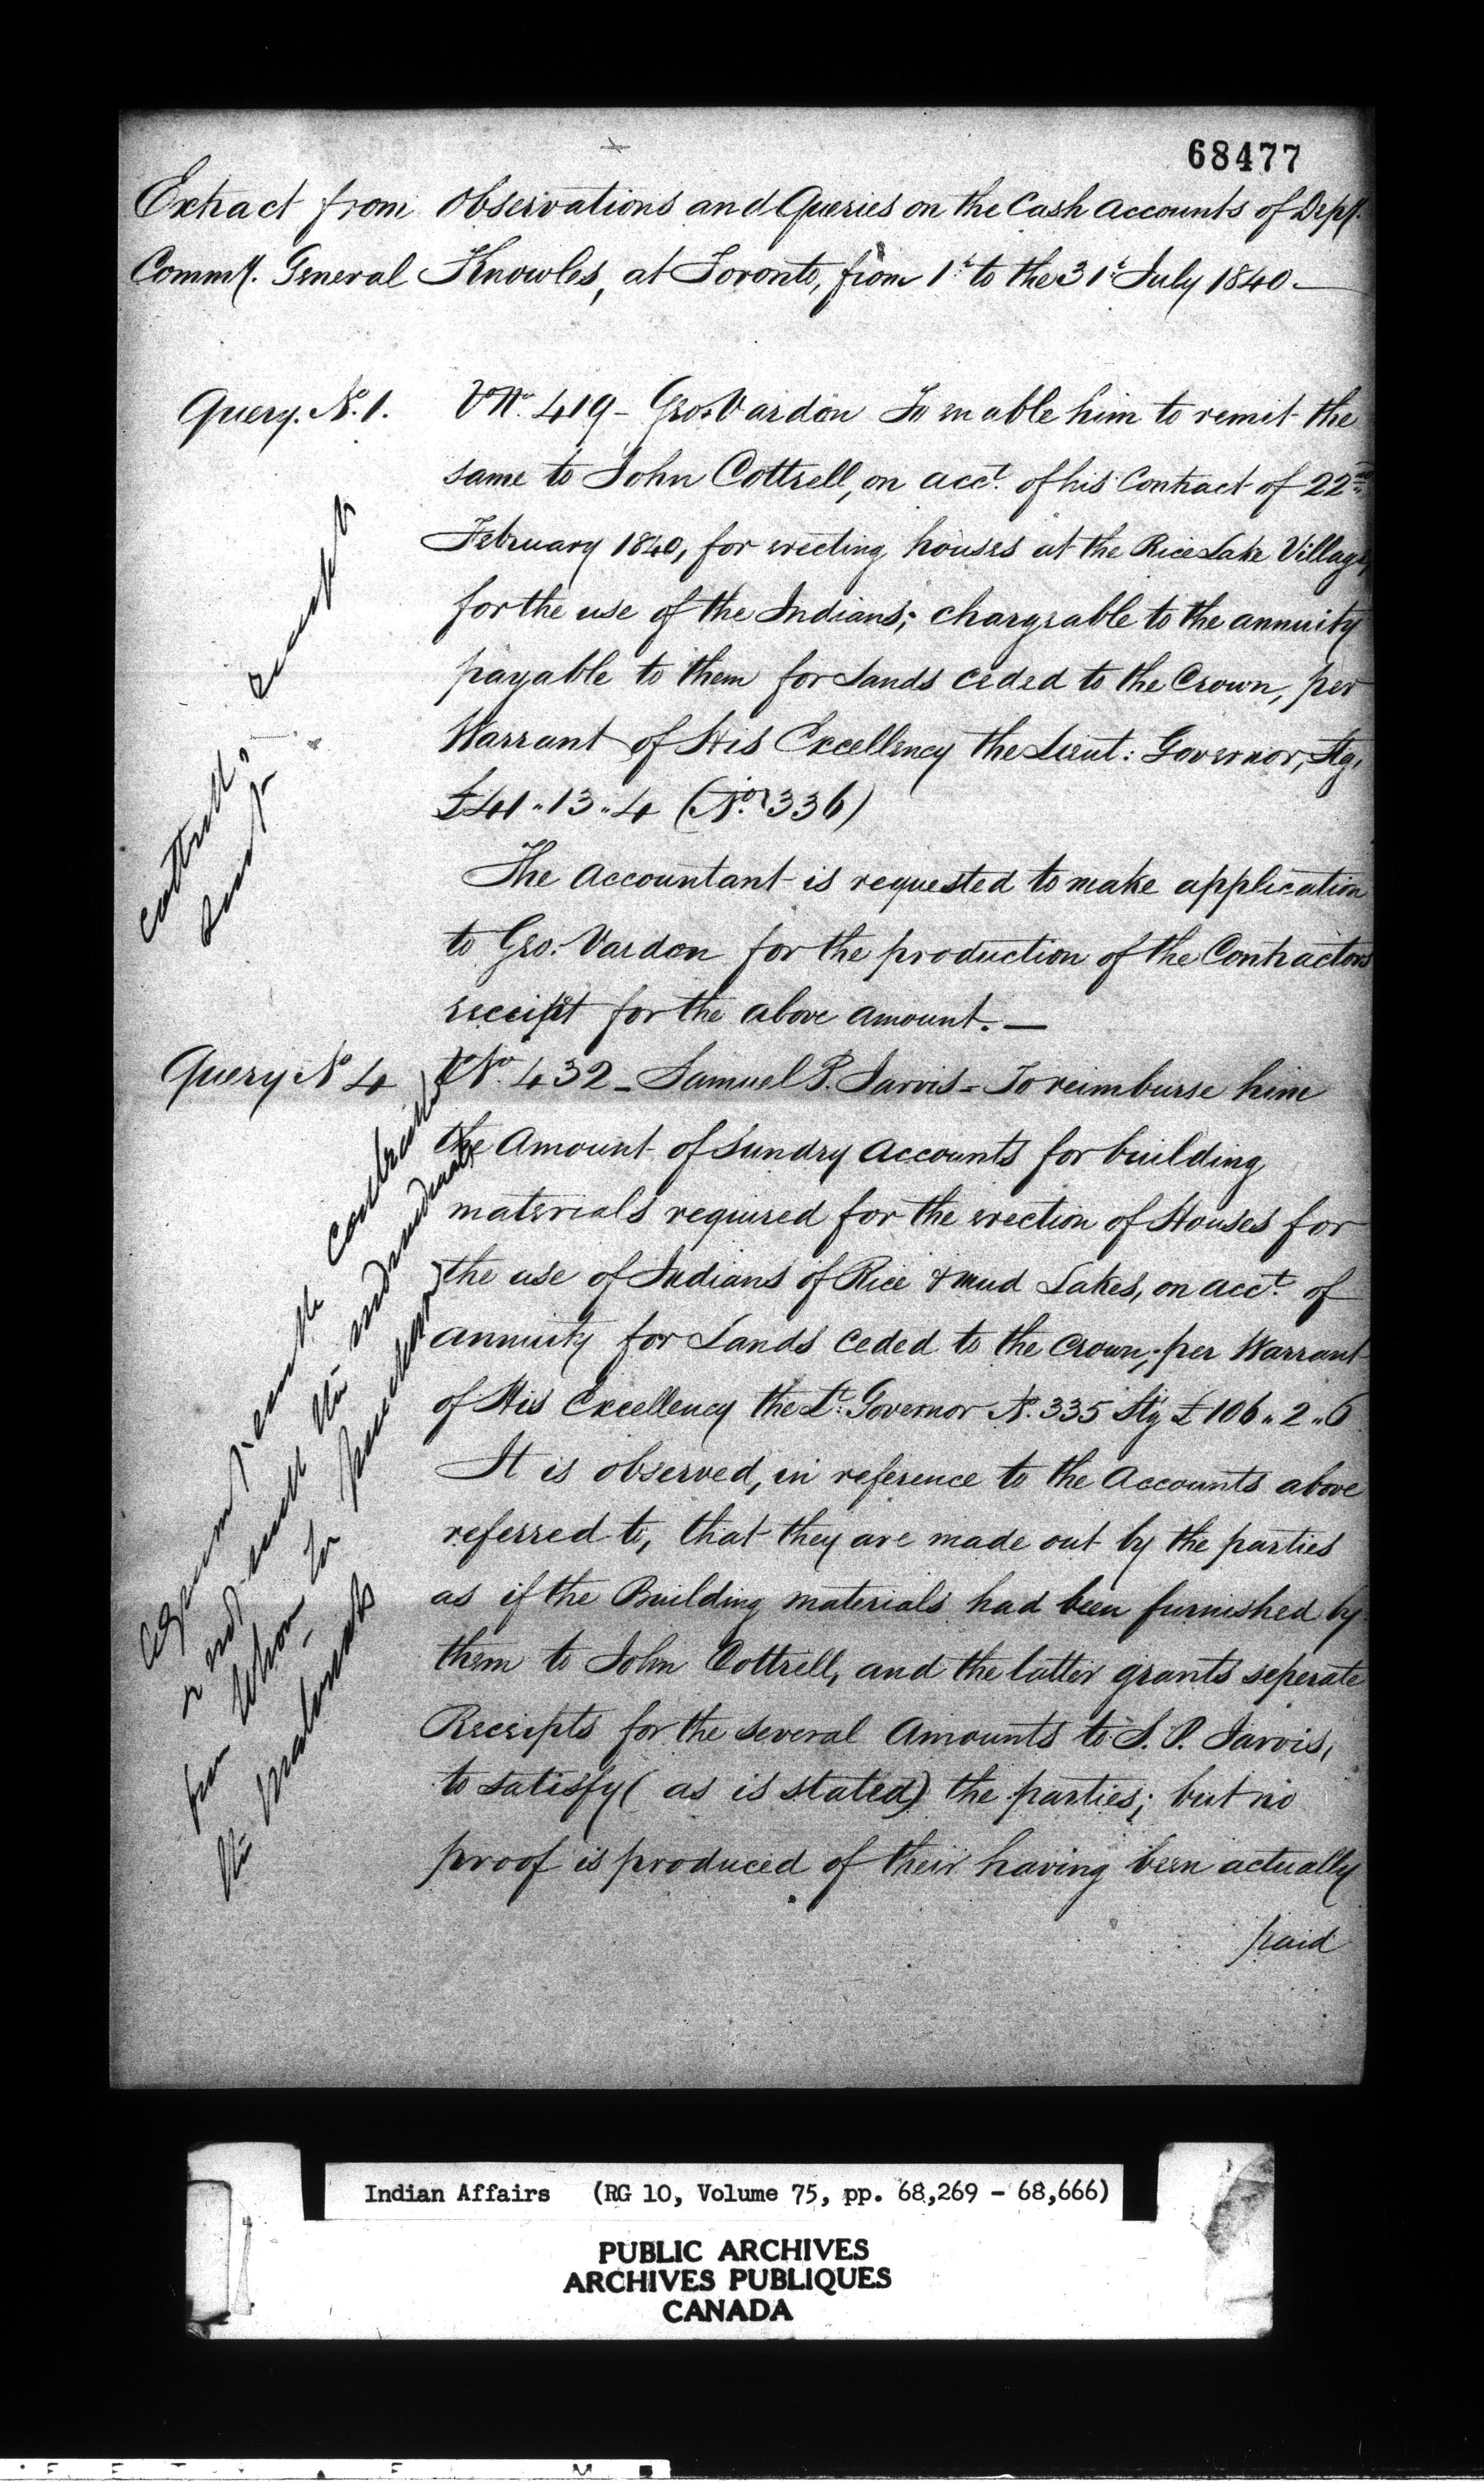 68477
Extract from Observations and Queries on the Cash Accounts of Depy.
Commy. General Knowles, at Toronto, from 1st to the 31st July 1840.—
Query. No. 1.
VNo. 419 - Geo. Vardon To enable him to remit the
same to John Cottrell, on acct. of his Contract of 22nd
February 1840, for erecting houses at the Rice Lake Village,
for the use of the Indians; chargeable to the annuity
payable to them for Lands ceded to the Crown, per
Warrant of His Excellency the Lieut: Governor, Stg.
£41..13..4 (No. 336)
Cottrell's receipt
sent
The Accountant is requested to make application
to Geo. Vardon for the production of the Contractors
receipt for the above amount. —
Query No 4
VNo. 432 - Samuel P. Jarvis - To reimburse him
the Amount of Sundry Accounts for building
materials required for the erection of Houses for
the use of Indians of Rice & Mud Lakes, on acct. of
annuity for Lands ceded to the Crown; per Warrant
of His Excellency the Lt. Governor No. 335 Stg £106..2..6
It is observed, in reference to the Accounts above
referred to, that they are made out by the parties
as if the Building materials had been furnished by
them to John Cottrell, and the latter grants seperate
Receipts for the several Amounts to S. P. Jarvis,
to satisfy (as is stated) the parties; but no
proof is produced of their having been actually
paid
with the contractor
& not with the individuals
from whom he purchased
the materials
Indian Affairs (RG 10, Volume 75, pp. 68,269 - 68,666)
PUBLIC ARCHIVES
ARCHIVES PUBLIQUES
CANADA